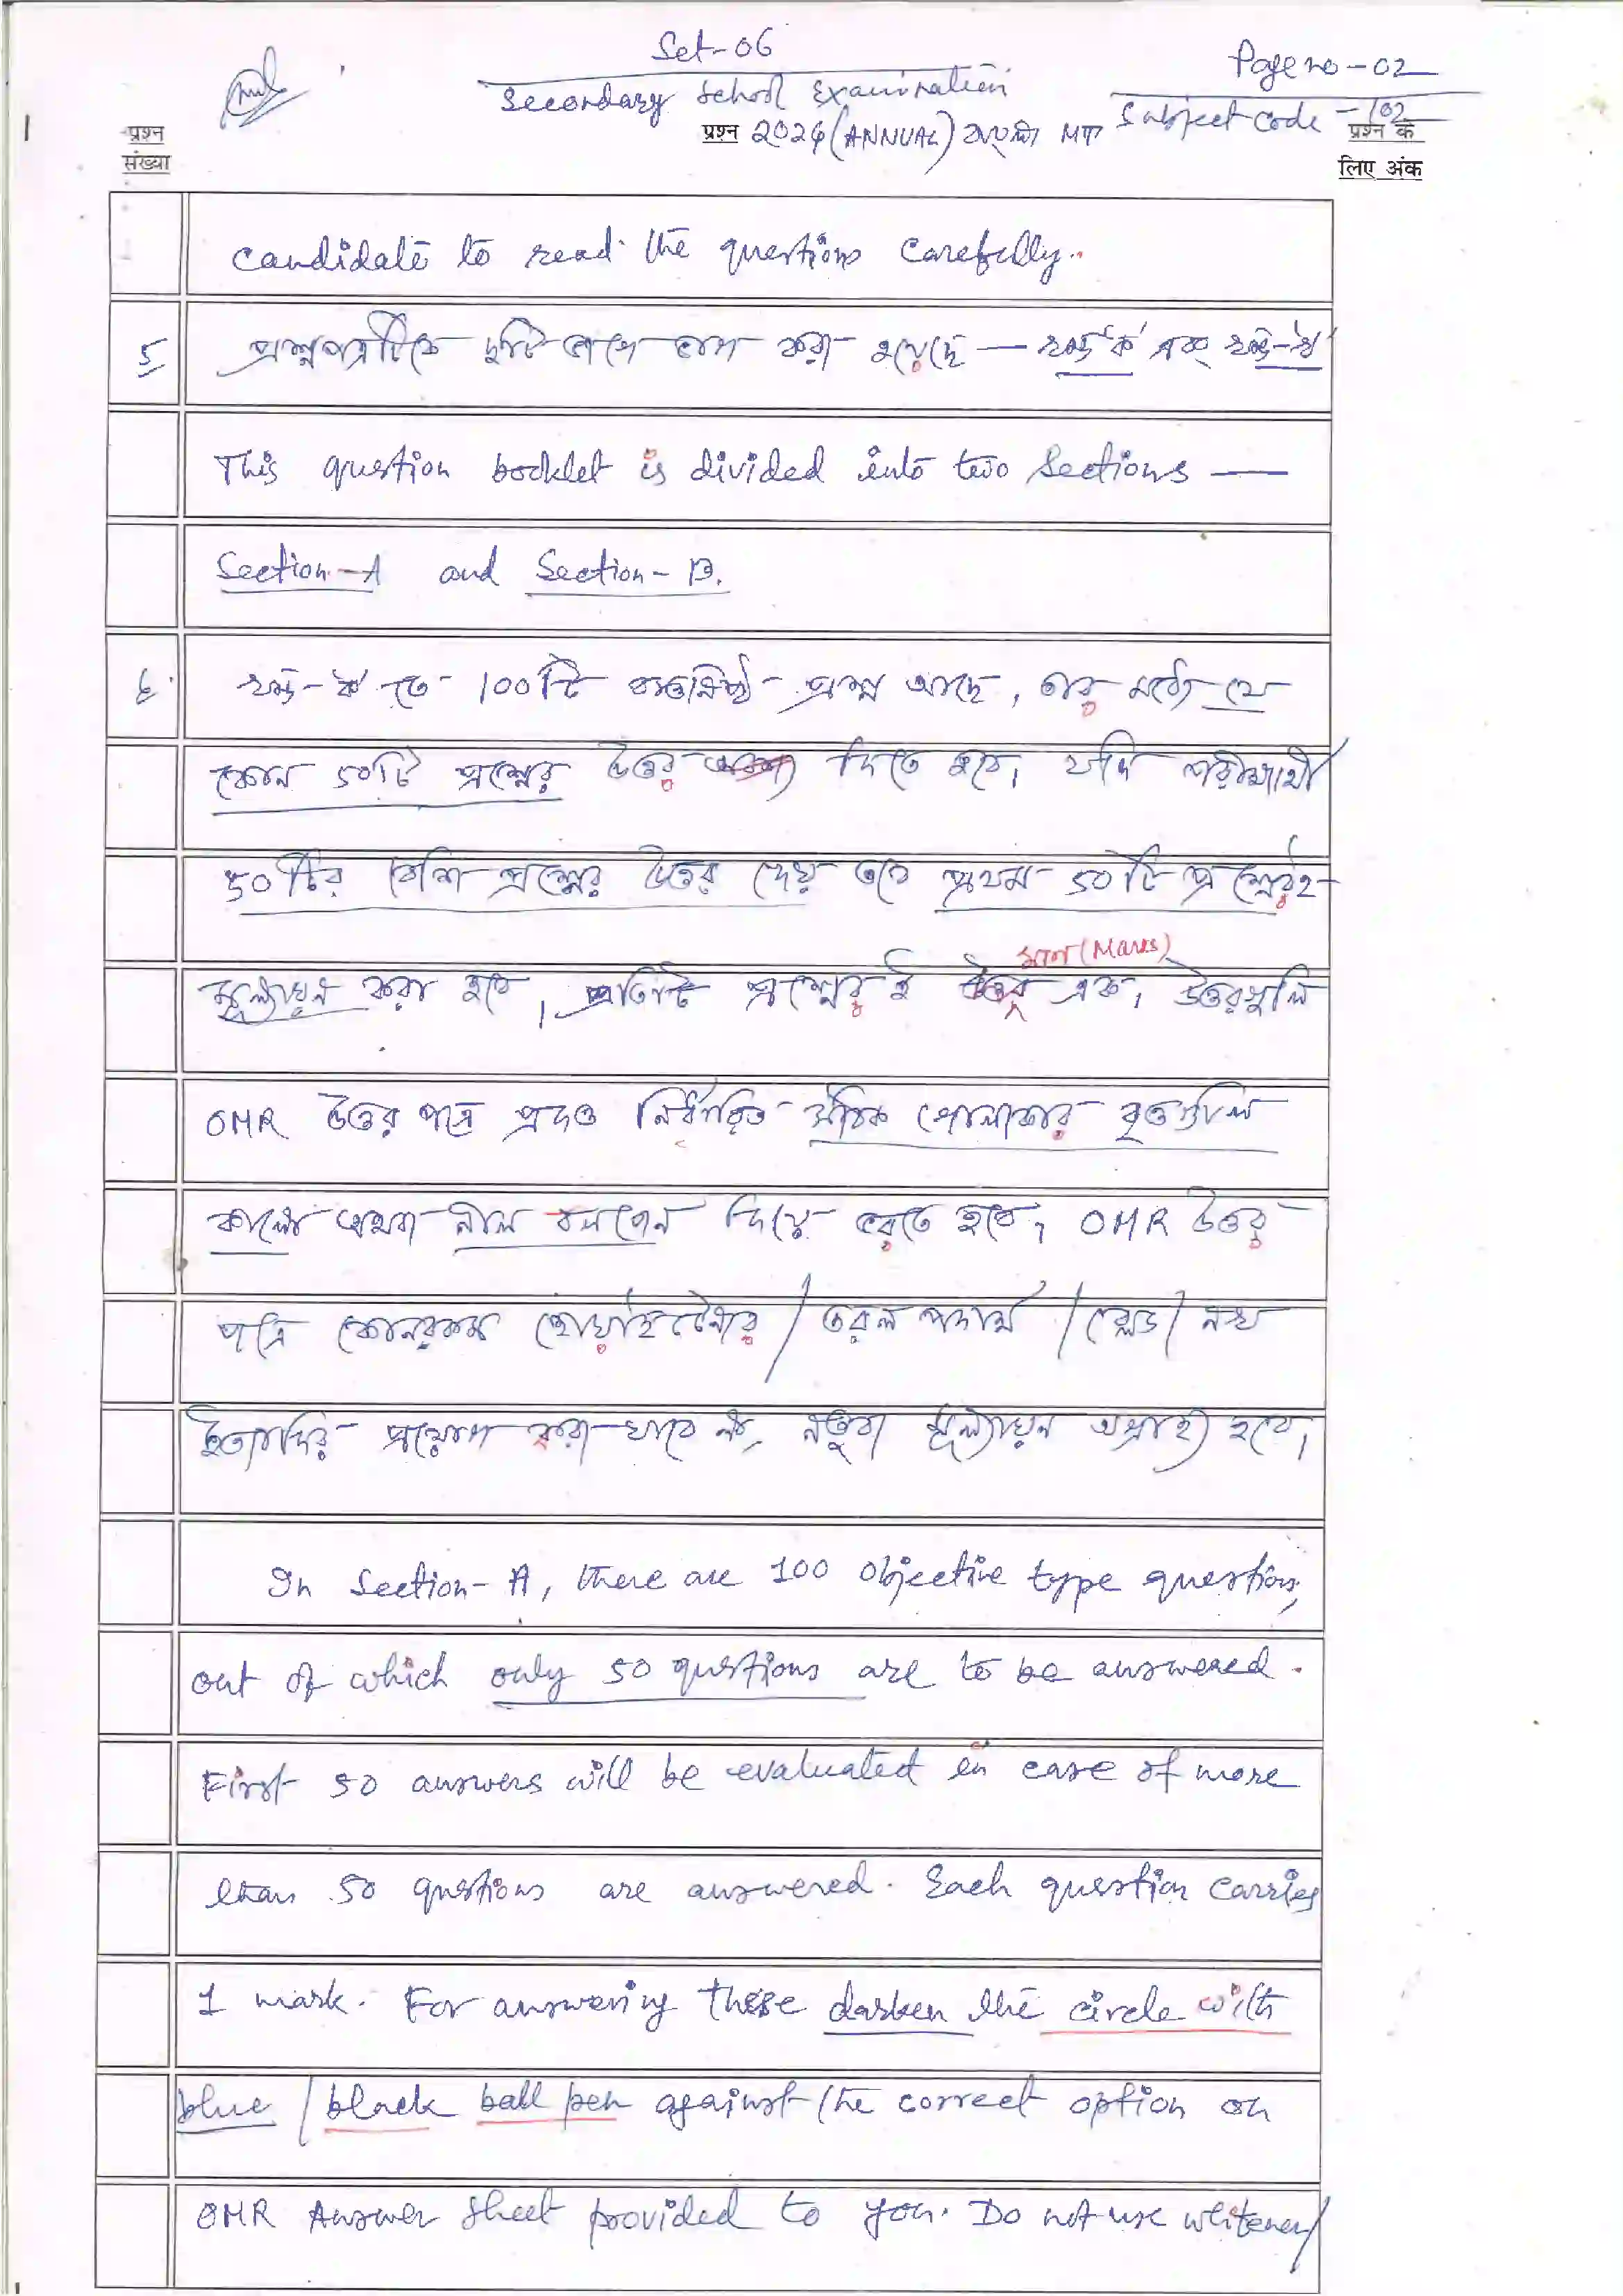 Set-06
Page no-02
Secondary School Examination
Subject code - 102
प्रश्न 2024 (ANNUAL)
प्रश्न
संख्या
प्रश्न के
लिए अंक
candidate to read the questions carefully.
5 প্রশ্নপত্রটিকে দুটি ভাগে ভাগ করা হয়েছে — খণ্ড-ক এবং খণ্ড-খ
This question booklet is divided into two Sections —
Section-A and Section-B.
6. খণ্ড-ক তে 100টি বস্তুনিষ্ঠ প্রশ্ন আছে, তার মধ্যে যে
কোন ৫০টি প্রশ্নের উত্তর দিতে হবে। যদি পরীক্ষার্থী
৫০টির বেশি প্রশ্নের উত্তর দেয় তবে প্রথম ৫০টি প্রশ্নেরই
মান (Marks)
মূল্যায়ন করা হবে। প্রতিটি প্রশ্নের ই এক। উত্তরগুলি
OMR উত্তর পত্রে প্রদত্ত নির্ধারিত সঠিক গোলাকার বৃত্তগুলি
কালো অথবা নীল বলপেন দিয়ে করতে হবে। OMR উত্তর
পত্রে কোনরকম হোয়াইটনার / তরল পদার্থ / ব্লেড / নখ
ইত্যাদির প্রয়োগ করা যাবে না, নতুবা মূল্যায়ন অগ্রাহ্য হবে।
In Section-A, there are 100 objective type questions,
out of which only 50 questions are to be answered.
First 50 answers will be evaluated in case of more
than 50 questions are answered. Each question carries
1 mark. For answering these darken the circle with
blue / black ball pen against the correct option on
OMR Answer Sheet provided to you. Do not use whitener/